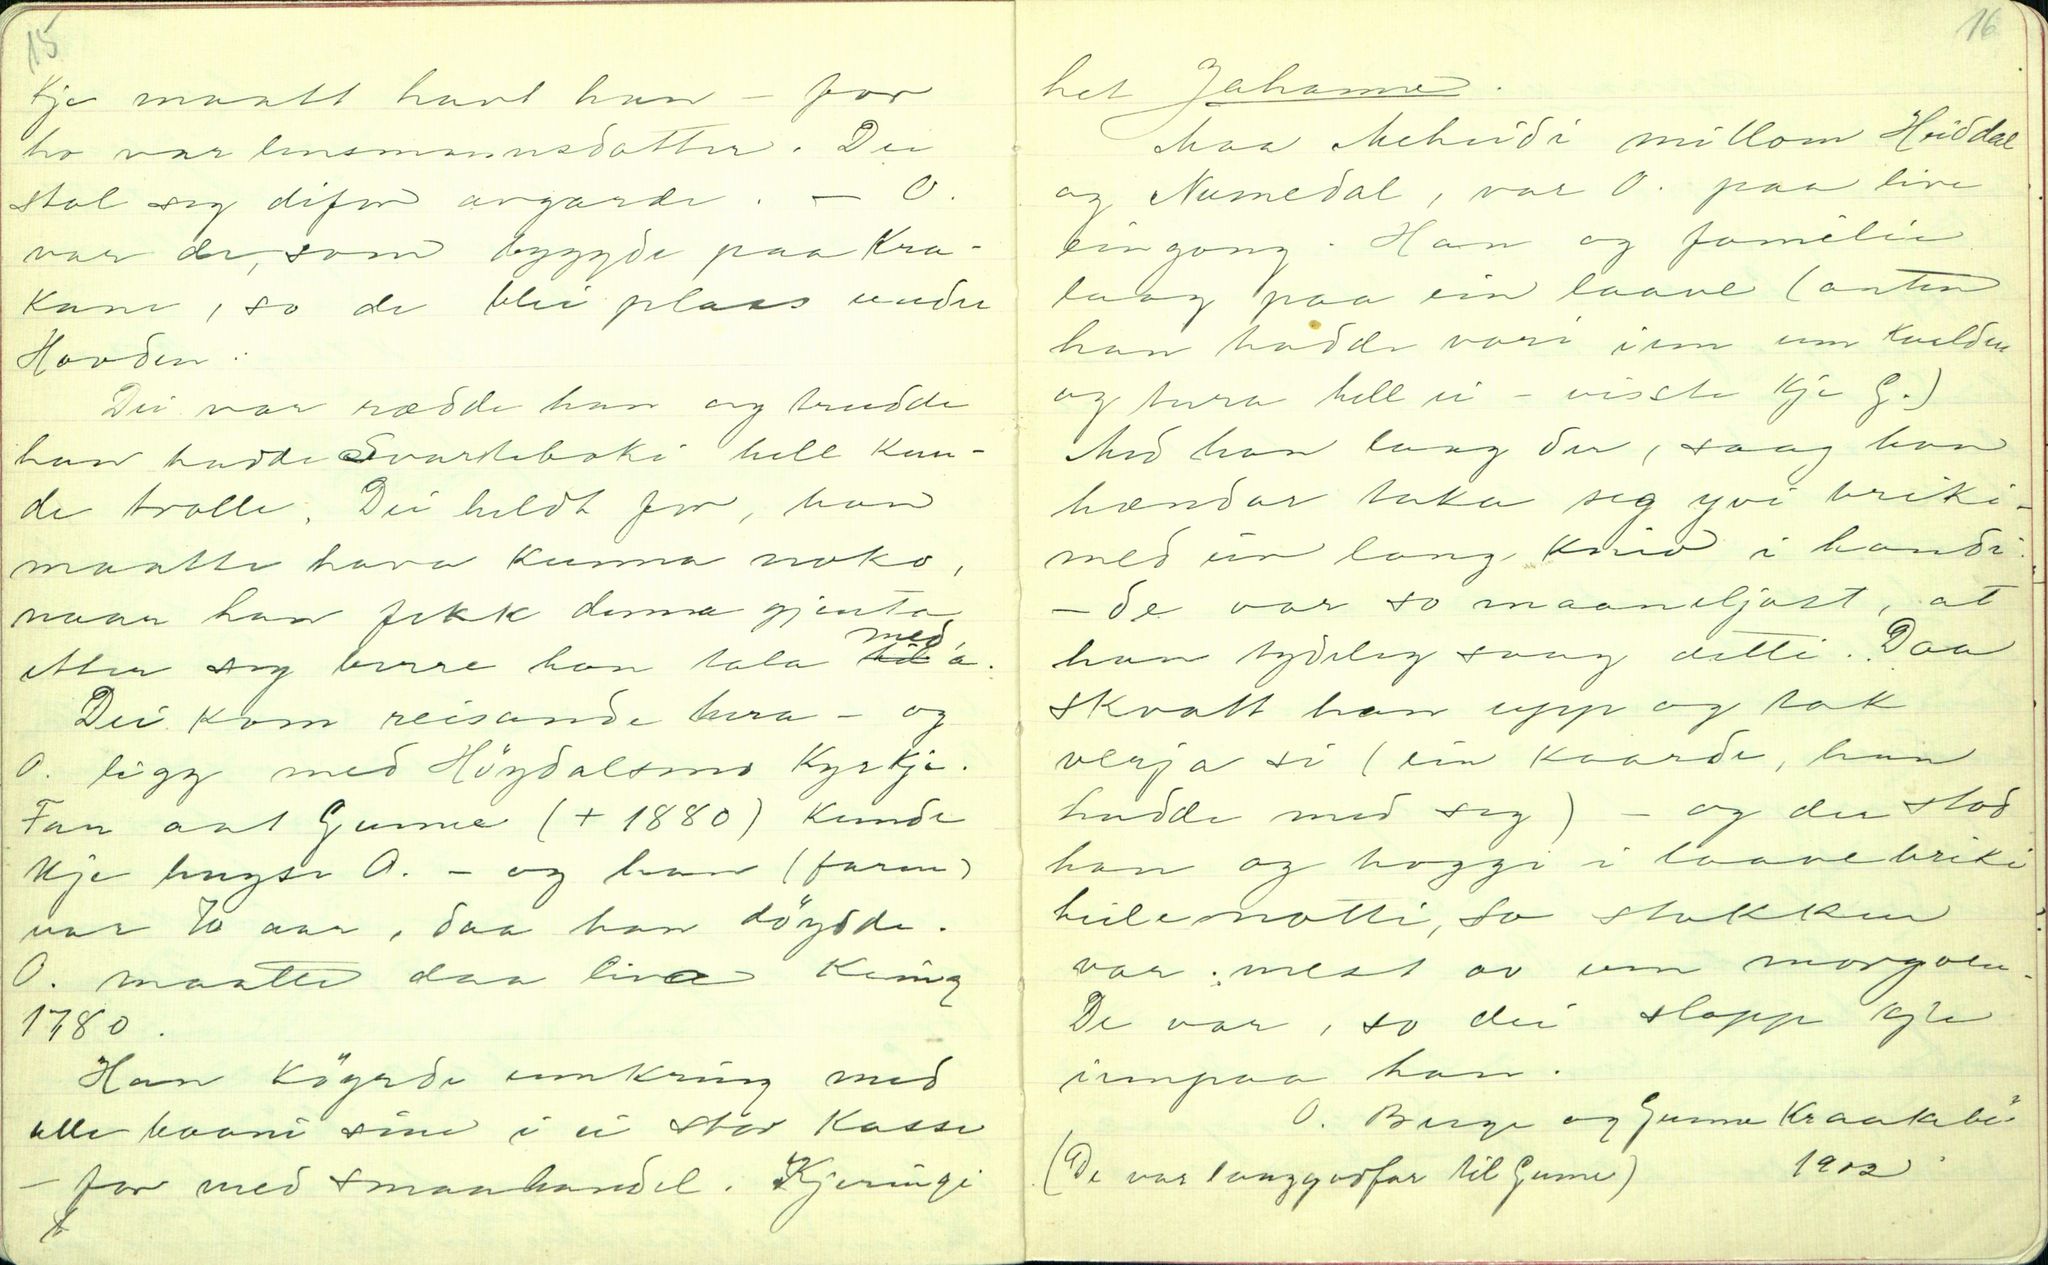 15
kje maatt havt han – for
ho var lensmannsdotter. Dei
stal seg difor avgarde. – O.
var de, som bygde paa Kra-
kane, so de blei plass undi
Hovden.
Dei var rædde han og trudde
han hadde Svarteboki hell kun-
de trolle. Dei heldt for, han
maatte hava kunna noko,
naar han fekk denna gjenta
etter seg berre han tala med 'a.
Dei kom reisande hera – og
O. ligg med Höydalsmo Kyrkje.
Far aat Gunne (+ 1880) kunde
kje hugse O. – og han (faren)
var 70 aar, daa han döydde.
O. maatte daa liva kring
1780.
Han köyrde umkring med
alle baani sine i ei stor kasse
– for med smaahandel. Kjeringi
16
het Johanne.
Maa Meheidi millom Heiddal
og Numedal, var O. paa live
eingong. Han og familie
laag paa ein laave (anten
han hadde vori inn um kvelden
og tura hell ei – visste kje G.)
Med han laag der, saag han
hændar taka seg yvi briki
med ein lang kniv i handi.
– de var so maaneljost, at
han tydeleg saag detti. Daa
skvatt han upp og tok
verja si (ein kaarde, han
hadde med seg) – og der stod
han og hoggi i laavebriki
heile notti, so stokken
var mest av um morgoen.
De var, so dei slapp kje
innpaa han.
O. Berge og Gunne Kraakebö
(De var langgodfar til Gunne) 1902